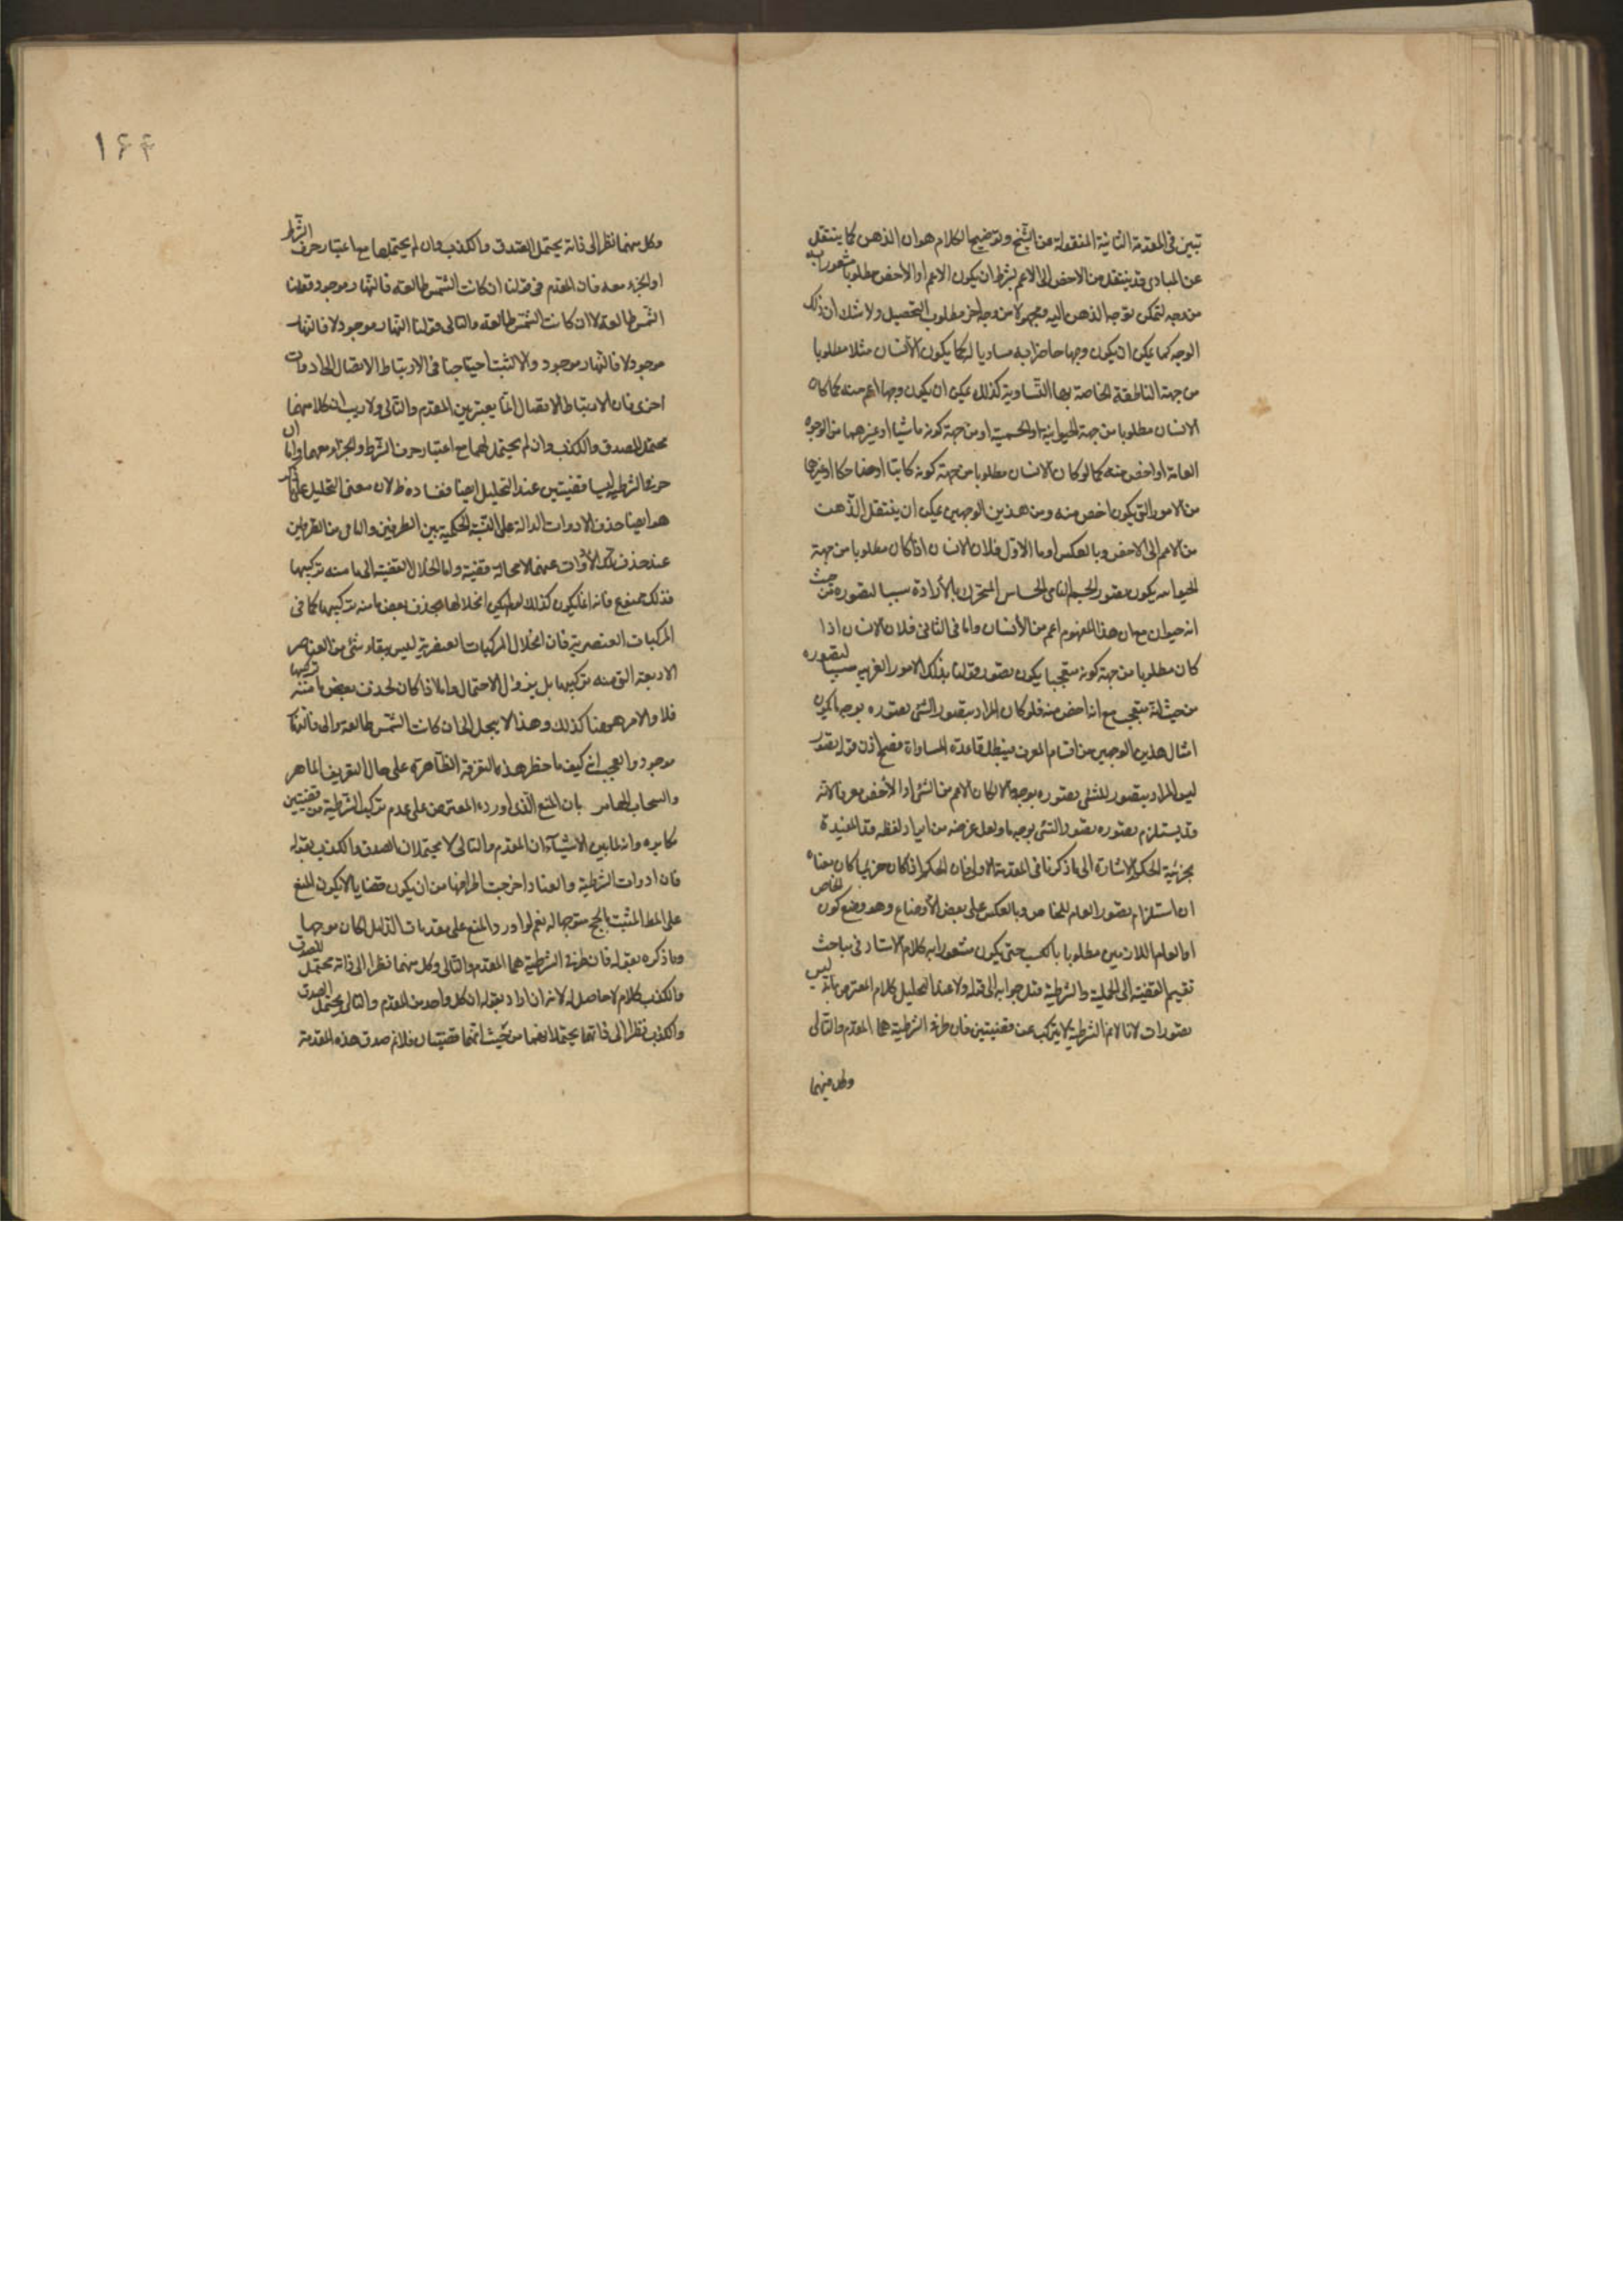 تبين فى المقدمة الثانية المنقولة من الشيخ وتوضيح الكلام هو ان الذهن كما ينتقل
عن المبادى قد ينتقل من الاخص الى الاعم بشرط ان يكون الاعم او الاخص مطلوبا مشعورا به
من وجه لتمكن توجه الذهن اليه ومجهولا من وجه اخر مطلوب التحصيل ولا شك ان ذلك
الوجه كما يمكن ان يكون وجها خاصا به مساويا له كما يكون الانسان مثلا مطلوبا
من جهة الناطقة الخاصة بها التساوية كذلك يمكن ان يكون وجها اعم منه كما كان
الانسان مطلوبا من جهة الحيوانية او الجسمية او من جهة كونه ماشيا او غيرهما من الوجوه
العامة او اخص منه كما لو كان الانسان مطلوبا من جهة كونه كاتبا او ضاحكا او غيرها
من الامور التى يكون اخص منه ومن هذين الوجهين يمكن ان ينتقل الذهن
من الاعم الى الاخص وبالعكس اما الاول فلان الانسان اذا كان مطلوبا من جهة
الحيوانية يكون تصور الجسم النامى الحساس المتحرك بالأرادة سببا لتصوره من حيث
انه حيوان مع ان هذا المفهوم اعم من الأنسان واما فى الثانى فلان الانسان اذا
كان مطلوبا من جهة كونه متعجبا يكون تصور قولنا بذلك الامور الغريبة سببا لتصوره
من حيث انه متعجب مع انه اخص منه فلو كان المراد بتصور الشئ تصوره بوجه ما يكون
امثال هذين الوجهين من اقسام المعرف فيبطل قاعدة المساواة فصح اذن قوله تصور
ليس المراد بتصور الشئ تصوره بوجه ما والا لكان الاعم من الشئ او الأخص معرفا لانه
قد يستلزم تصوره تصور الشئ بوجه ما ولعل غرضه من ايراد لفظه قد المفيدة
بجزئية الحكم الاشارة الى ما ذكرنا فى المقدمة الاولى فان الحكم اذا كان جزئيا كان معناه
ان استلزام تصور العام للخاص وبالعكس على بعض الأوضاع وهو وضع كون الخاص
او العام اللازمين مطلوبا بالكسب حتى يكون مشعورا به كلام الاستاد فى مباحث
تقسيم القضية الى الحملية والشرطية مثل جوابه الى قوله ولا عند التحليل كلام المعترض بانه ليس
تصورات لانا لانم الشرطية لا يتركب عن قضيتين فان طرفى الشرطية هما المقدم والتالى
وكل منهما
١۶۴
وكل منهما نظرا الى ذاته يحتمل الصدق والكذب وان لم يحتملها مع اعتبار حرف الشرط
او الجزاء معه فان المقدم فى قولنا ان كانت الشمس طالعة فالنهار موجود قولنا
الشمس طالعة لا ان كانت الشمس طالعة والتالى قولنا النهار موجود لا فالنهار
موجود لا فالنهار موجود والا لثبت احتياجنا فى الارتباط الاتصال الى ادوات
اخرى فان الارتباط الاتصال انما يعتبر بين المقدم والتالى ولا ريب ان كلا منهما
محتمل للصدق والكذب وان لم يحتملهما مع اعتبار حرف الشرط والجزاء معهما واما ان
طرفى الشرطية ليسا قضيتين عند التحليل ايضا ففساده ظ لان معنى التحليل على ما
هو ايضا حذف الادوات الدالة على النسبة الحكمية بين الطرفين والباقى من الطرفين
عند حذف تلك الأدوات عنهما لا محالة قضية واما انحلال القضية الى ما منه تركيبها
فذلك ممنوع فانه انما يكون كذلك لو لم يكن انحلالها بحذف بعض ما منه تركيبها كما فى
المركبات العنصرية فان انحلال المركبات العنصرية ليس ببقاء شئ من العناصر
الاربعة التى منه تركيبها بل بزوال الاحتمال واما اذا كان بحذف بعض ما منه تركيبها
فلا والامر ههنا كذلك وهذا لا ينحل الى ان كانت الشمس طالعة والى فالنهار
موجود والعجب انى كيف ما خطر هذا بالتفرقة الظاهرة على حال التعريف الماهر
والسحاب الهامر بان المنع الذى اورده المعترض على عدم تركيب الشرطية من قضيتين
مكابرة وانه لما بين الاشياء ان المقدم والتالى لا يحتملان الصدق والكذب بقوله
فان ادوات الشرطية والعناد اخرجت اطرافها من ان يكون قضايا لا يكون المنع
على المط المثبت بالحجج متوجها له نعم لو اورد المنع على مقدمات الدليل لكان موجها
وما ذكره بقوله فان طرفى الشرطية هما المقدم والتالى وكل منهما نظرا الى ذاته محتمل للصدق
والكذب كلام لا حاصل له لانه ان اراد بقوله ان كل واحد من المقدم والتالى يحتمل الصدق
والكذب نظرا الى ذاتهما يحتملانهما من حيث انهما قضيتان فلا نم صدق هذه المقدمة